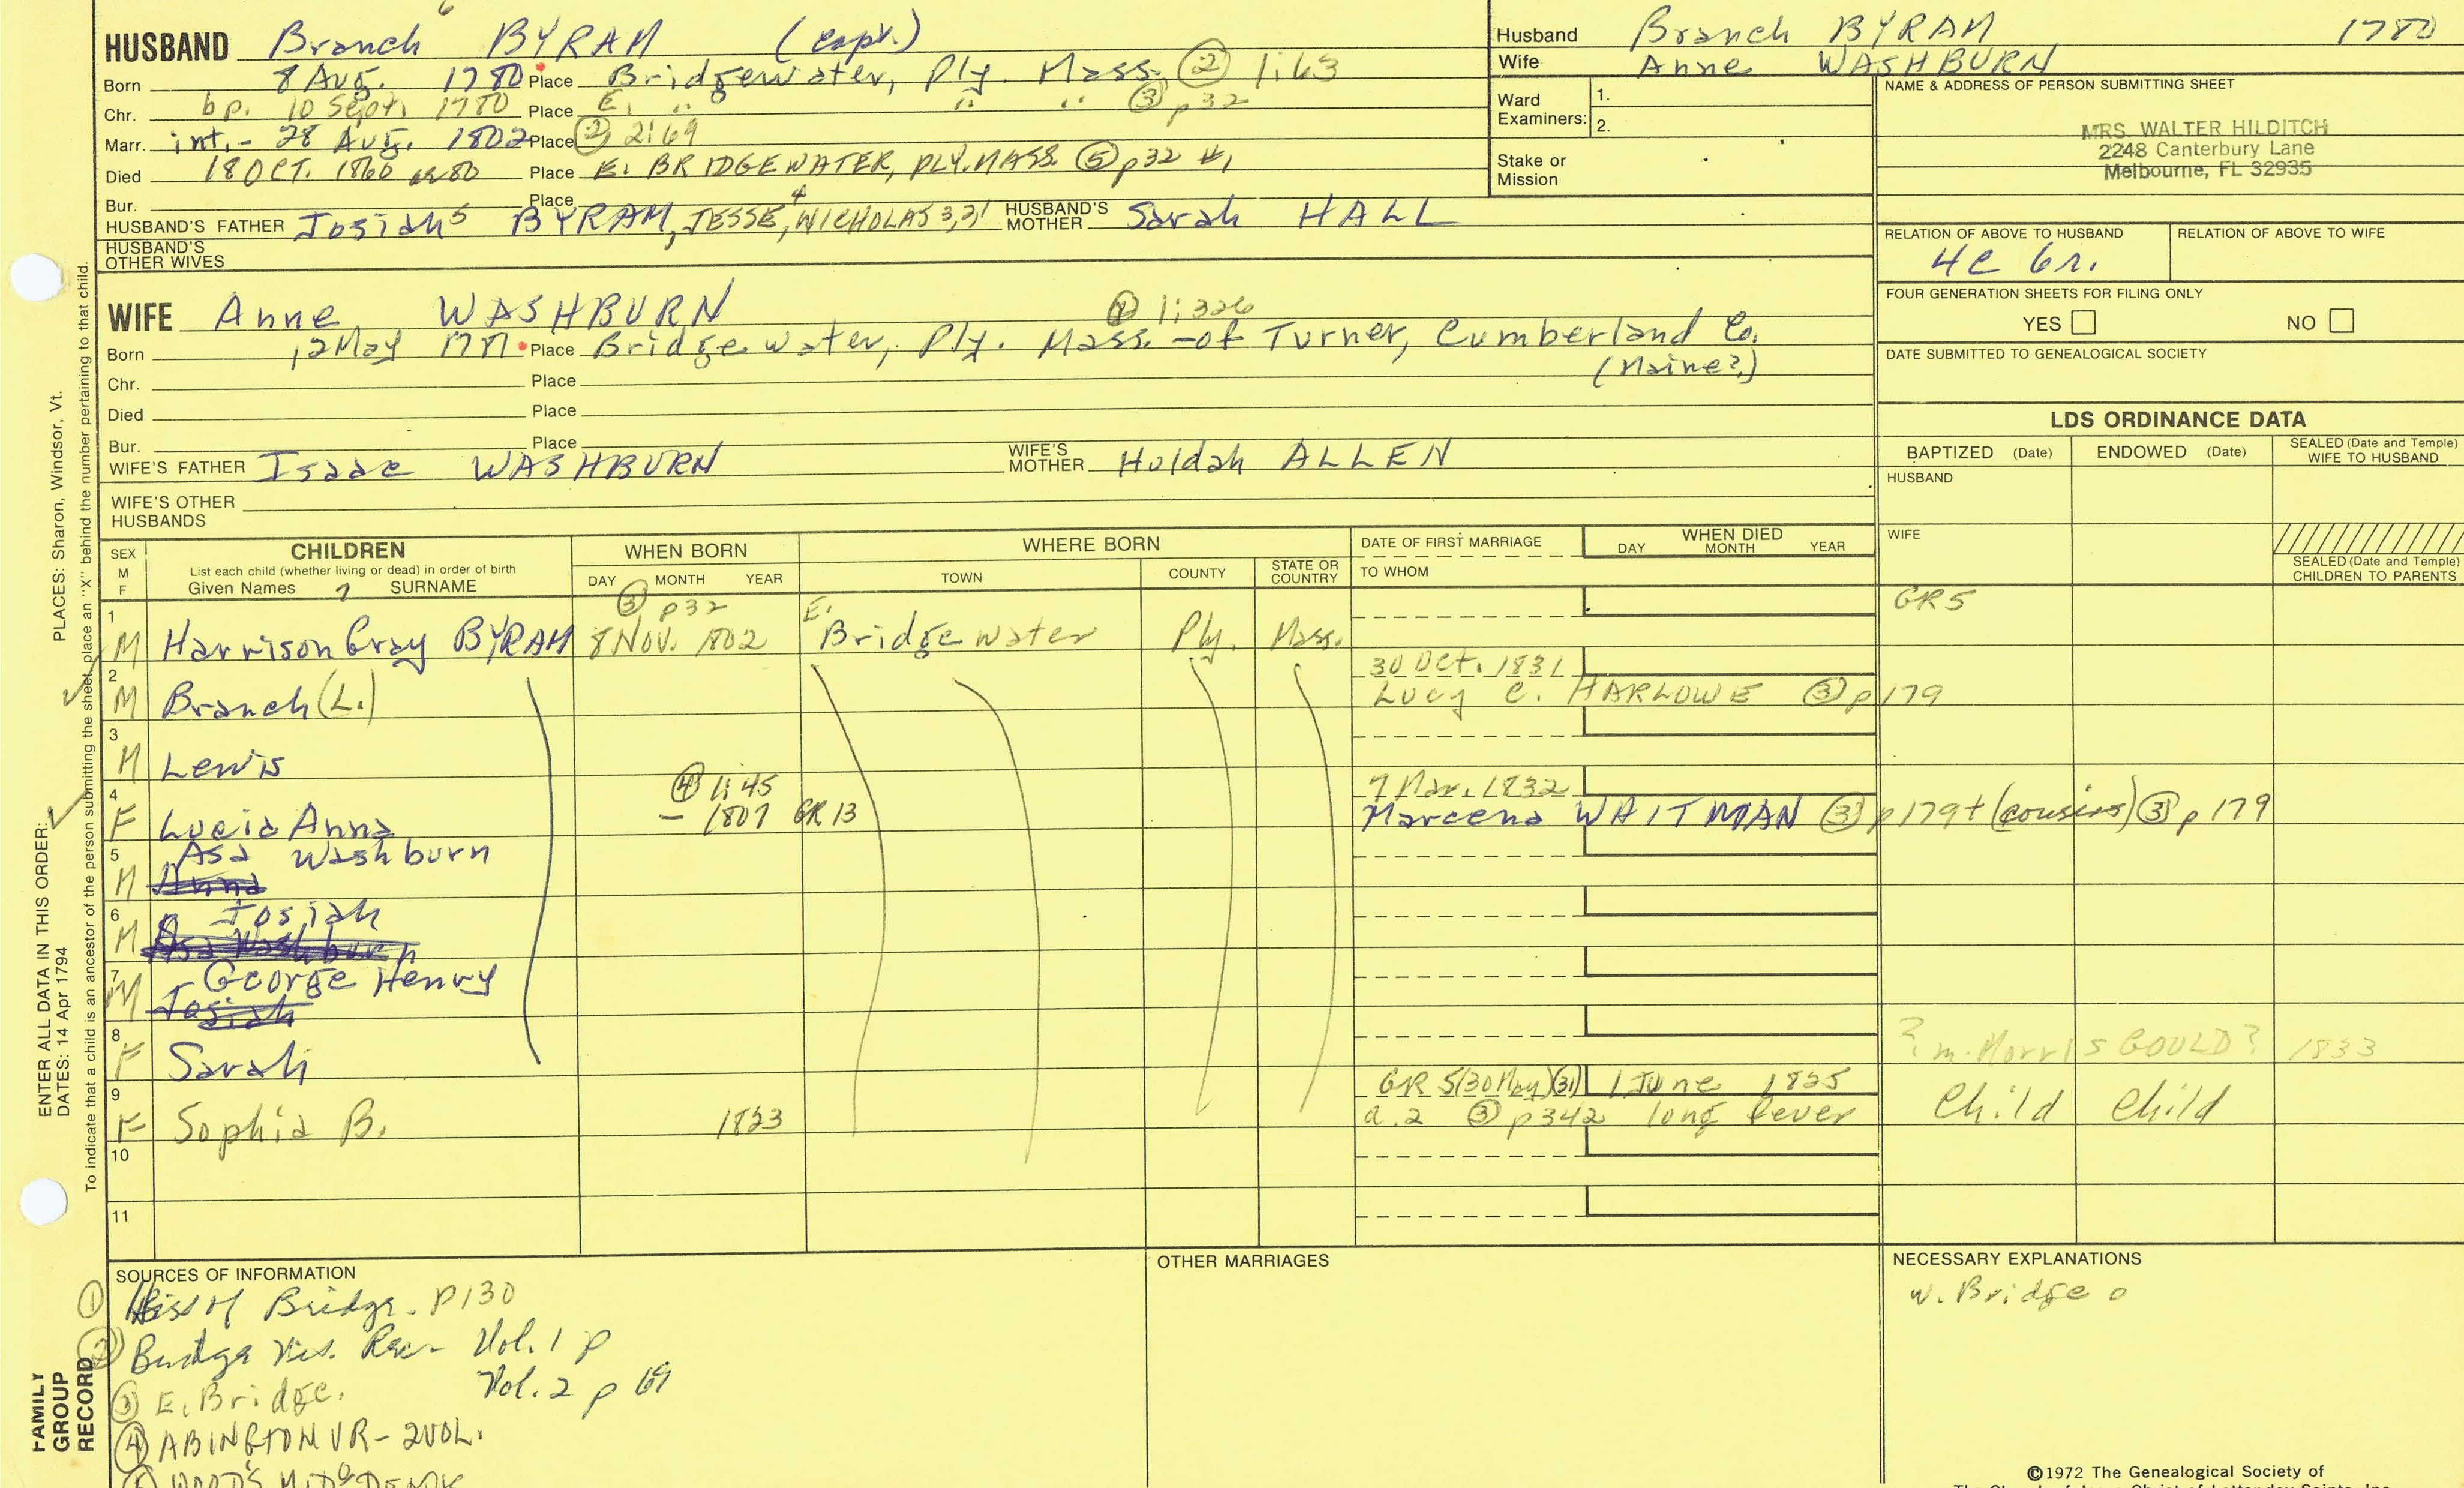 HUSBAND Branch BYRAM (capt.)
Born 8 Aug. 1780 Place Bridgewater, Ply. Mass. ② 1:63
Chr. bp. 10 Sept. 1780 Place E. " " " ③ p32
Marr. int. - 28 Aug. 1802 Place ② 2:69
Died 18 OCT. 1860 ae 80 Place E. BRIDGEWATER, PLY. MASS. ⑤ p32 #1
Bur. Place
HUSBAND'S FATHER Josiah5 BYRAM, JESSE4, NICHOLAS 3,2,1 HUSBAND'S MOTHER Sarah HALL
HUSBAND'S OTHER WIVES
WIFE Anne WASHBURN 1:326
Born 12 May Place Bridgewater, Ply. Mass. - of Turner, Cumberland Co.
(Maine?)
Chr. Place
Died Place
Bur. Place
WIFE'S FATHER Isaac WASHBURN WIFE'S MOTHER Huldah ALLEN
WIFE'S OTHER HUSBANDS
Husband Branch BYRAM 1780
Wife Anne WASHBURN
Ward Examiners: 1.
2.
Stake or Mission
NAME & ADDRESS OF PERSON SUBMITTING SHEET
MRS. WALTER HILDITCH
2248 Canterbury Lane
Melbourne, FL 32935
RELATION OF ABOVE TO HUSBAND RELATION OF ABOVE TO WIFE
4c 6r.
FOUR GENERATION SHEETS FOR FILING ONLY
YES NO
DATE SUBMITTED TO GENEALOGICAL SOCIETY
LDS ORDINANCE DATA
BAPTIZED (Date) ENDOWED (Date) SEALED (Date and Temple) WIFE TO HUSBAND
HUSBAND
WIFE
SEALED (Date and Temple) CHILDREN TO PARENTS
SEX M F
CHILDREN
List each child (whether living or dead) in order of birth
Given Names 7 SURNAME
WHEN BORN
DAY MONTH YEAR
WHERE BORN
TOWN COUNTY STATE OR COUNTRY
DATE OF FIRST MARRIAGE
TO WHOM
WHEN DIED
DAY MONTH YEAR
1 ③ p32 GR5
M Harrison Gray BYRAM 8 Nov. 1802 E. Bridgewater Ply. Mass.
2 30 Oct. 1831
M Branch (L.) Lucy C. HARLOWE ③ p179
3
M Lewis
4 ④ 1:45 7 Mar. 1832
F Lucia Anna - 1807 GR 13 Marcena WAITMAN ③ p179 + (cousins) ③ p179
5 Asa Washburn
M Anna
6 Josiah
M Asa Washburn
7 George Henry
M Josiah
8
F Sarah ? m. Morris GOULD? 1833
9 GR 5 (30 May) 1 June 1825
F Sophia B. 1823 a. 2 ③ p342 long fever Child Child
10
11
SOURCES OF INFORMATION
① Hist of Bridge. p130
② Bridge Vit. Rec - Vol. 1 p
Vol. 2 p 69
③ E. Bridge.
④ ABINGTON VR - 2 VOL.
OTHER MARRIAGES
NECESSARY EXPLANATIONS
w. Bridge o
©1972 The Genealogical Society of
PLACES: Sharon, Windsor, Vt.
ENTER ALL DATA IN THIS ORDER:
DATES: 14 Apr 1794
To indicate that a child is an ancestor of the person submitting the sheet, place an "X" behind the number pertaining to that child.
FAMILY GROUP RECORD